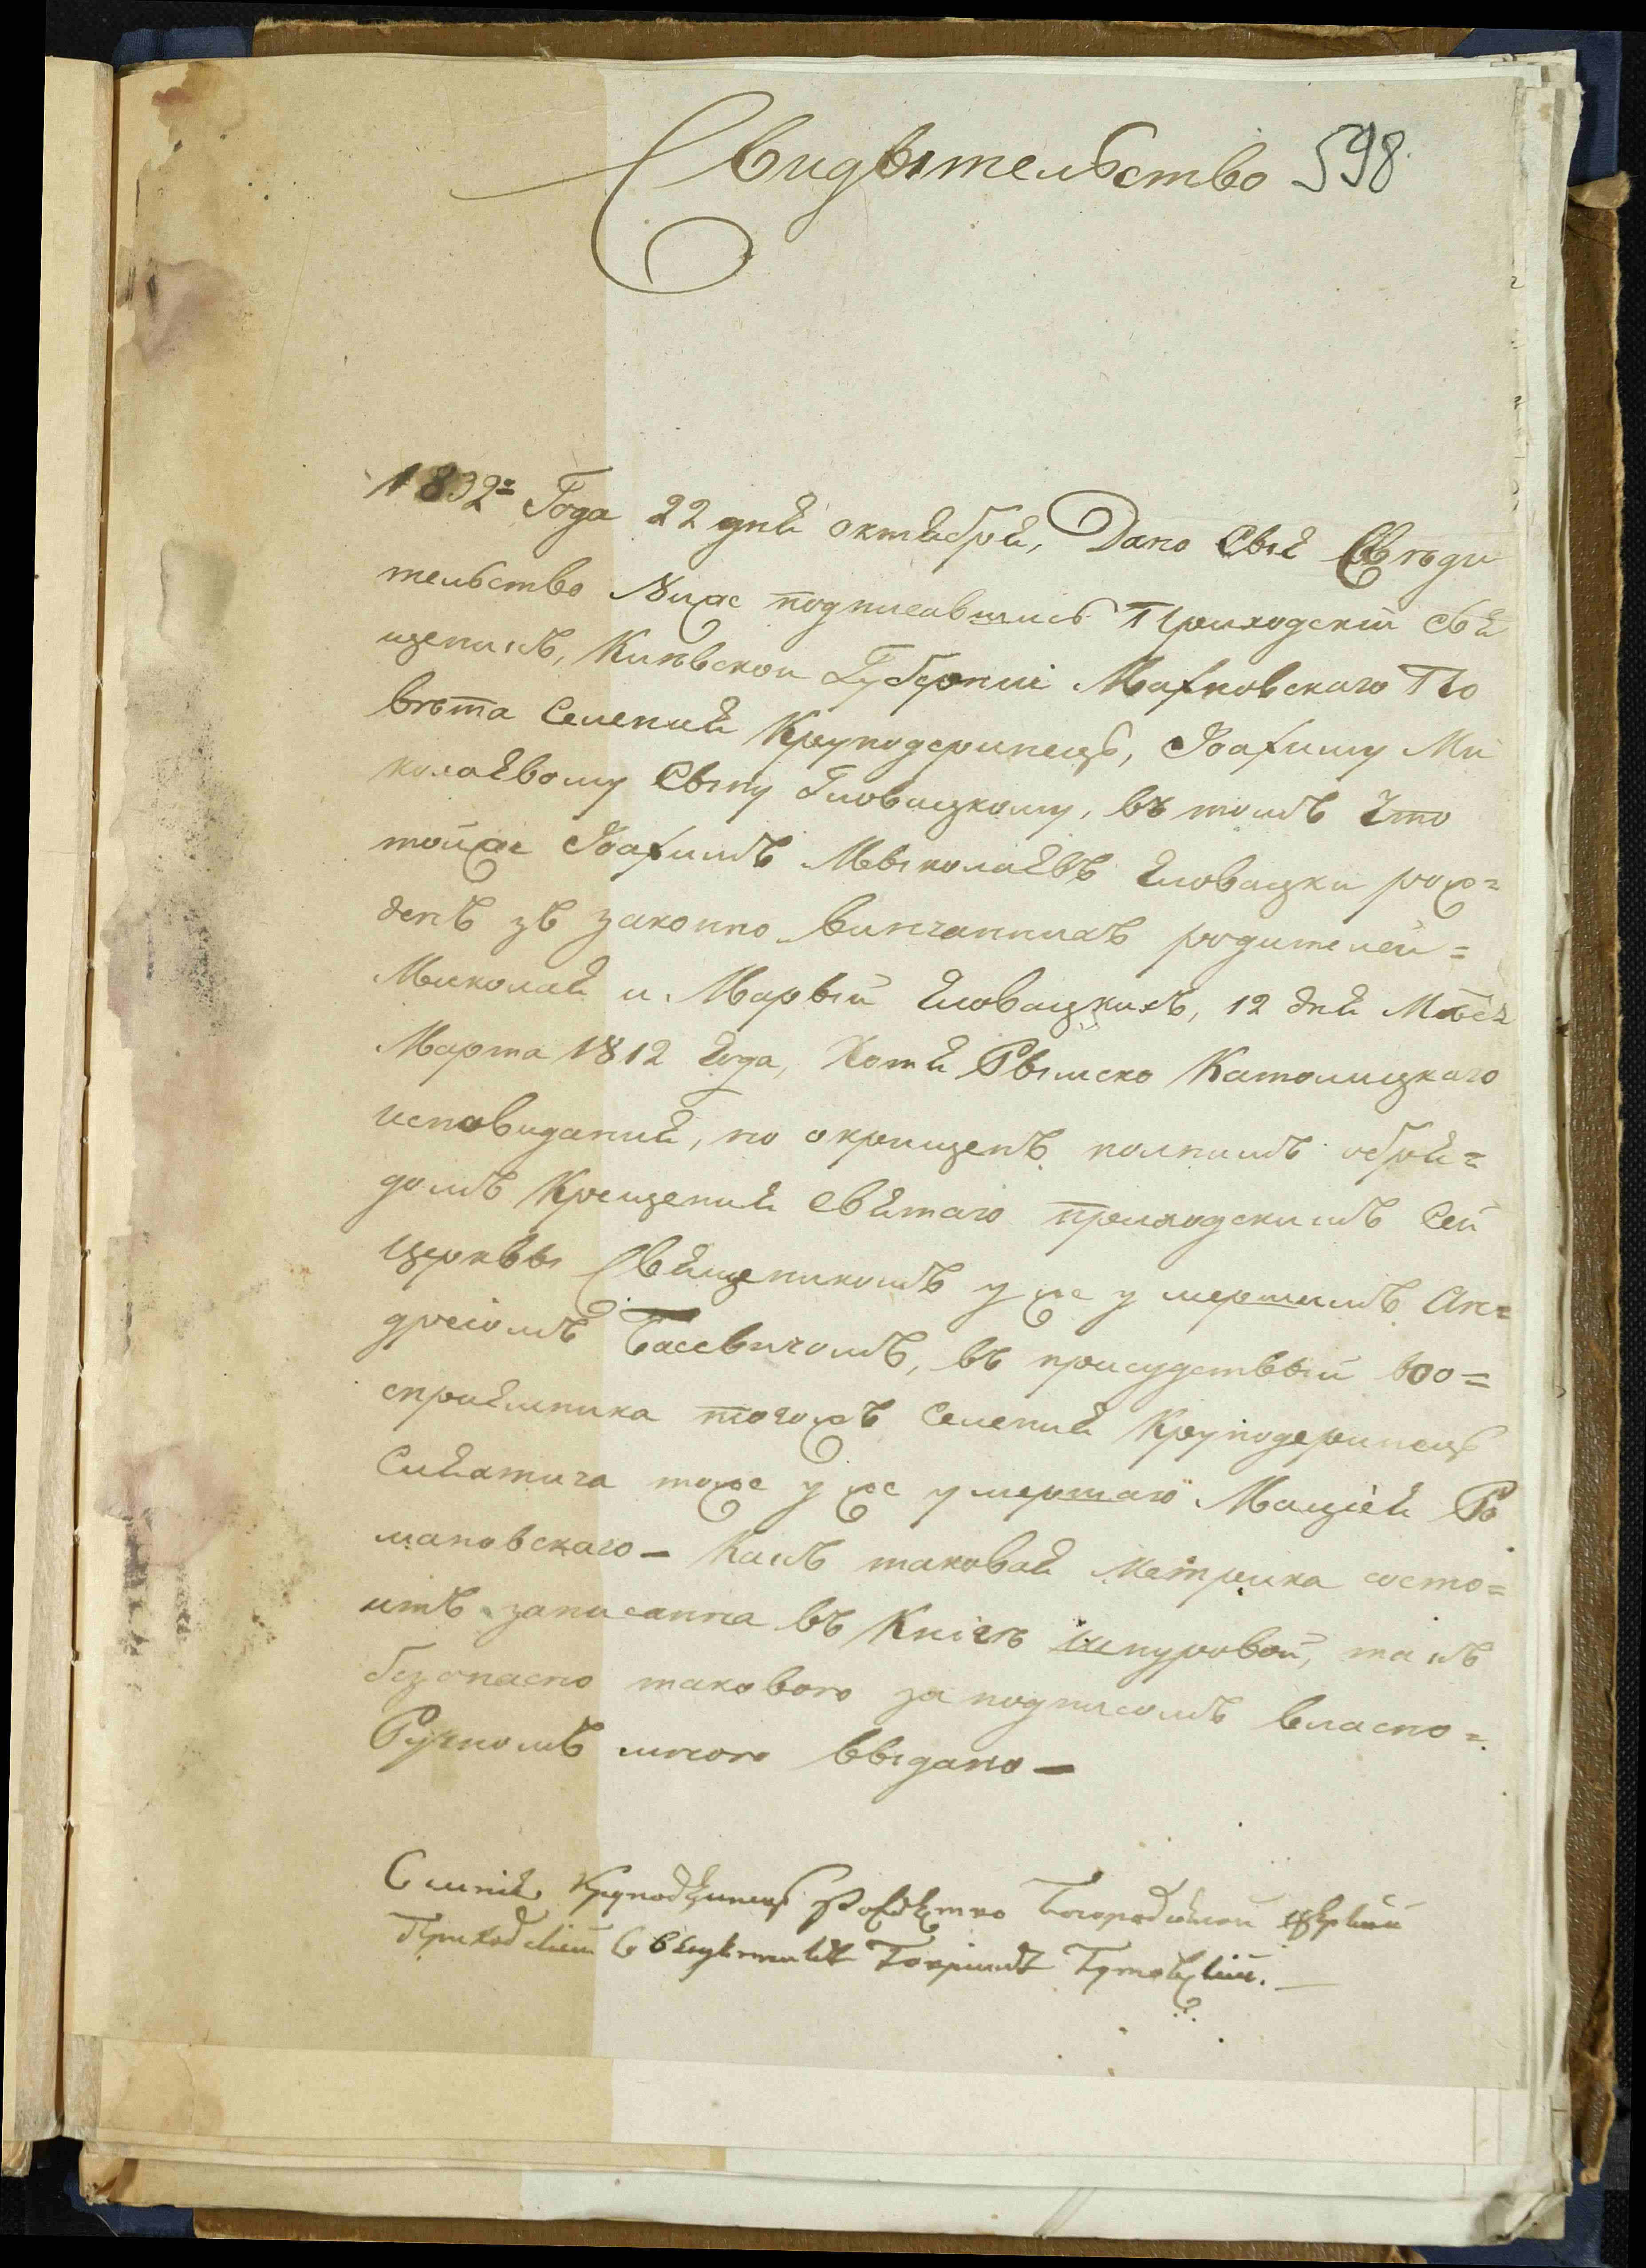 Свидѣтельство 598
1832го Года 22 дня октября, Дано Сые Свѣди
тельство Ниже подписавшись Приходскій свя
щеникъ, Киевской Губерніи Махновскаго По
вѣта Селения Круподеринецъ, Иоахиму Ми
колаевому Сыну Гловацкому, въ томъ Что
тойже Иоахимъ Мыколаевъ Гловацки рож=
денъ зъ законно винчанныхъ родителей=
Миколая и Марыи Гловацкихъ, 12 дня М
Марта 1812 Года, Хотя Рымско Католицкаго
исповидания, но окрищенъ полнимъ обря=
домъ Крещения Святаго приходскимъ Сей
Церквы Священикомъ уже умершимъ Ан=
дреіомъ Басевичомъ, въ присудствыи вос=
приемника тогожъ Селения Круподеринецъ
тоже уже умершаго Мацѣя Ро
мановскаго — Какъ таковая Метрика состо=
итъ записанна въ Книгѣ шнуровой, такъ
безопасно таковою за подписомъ власно=
Ручномъ мною выдано —
Селнія Круподеринецъ Рождество Богородичной церквы
Приходскій Священникъ Гутовскій. —